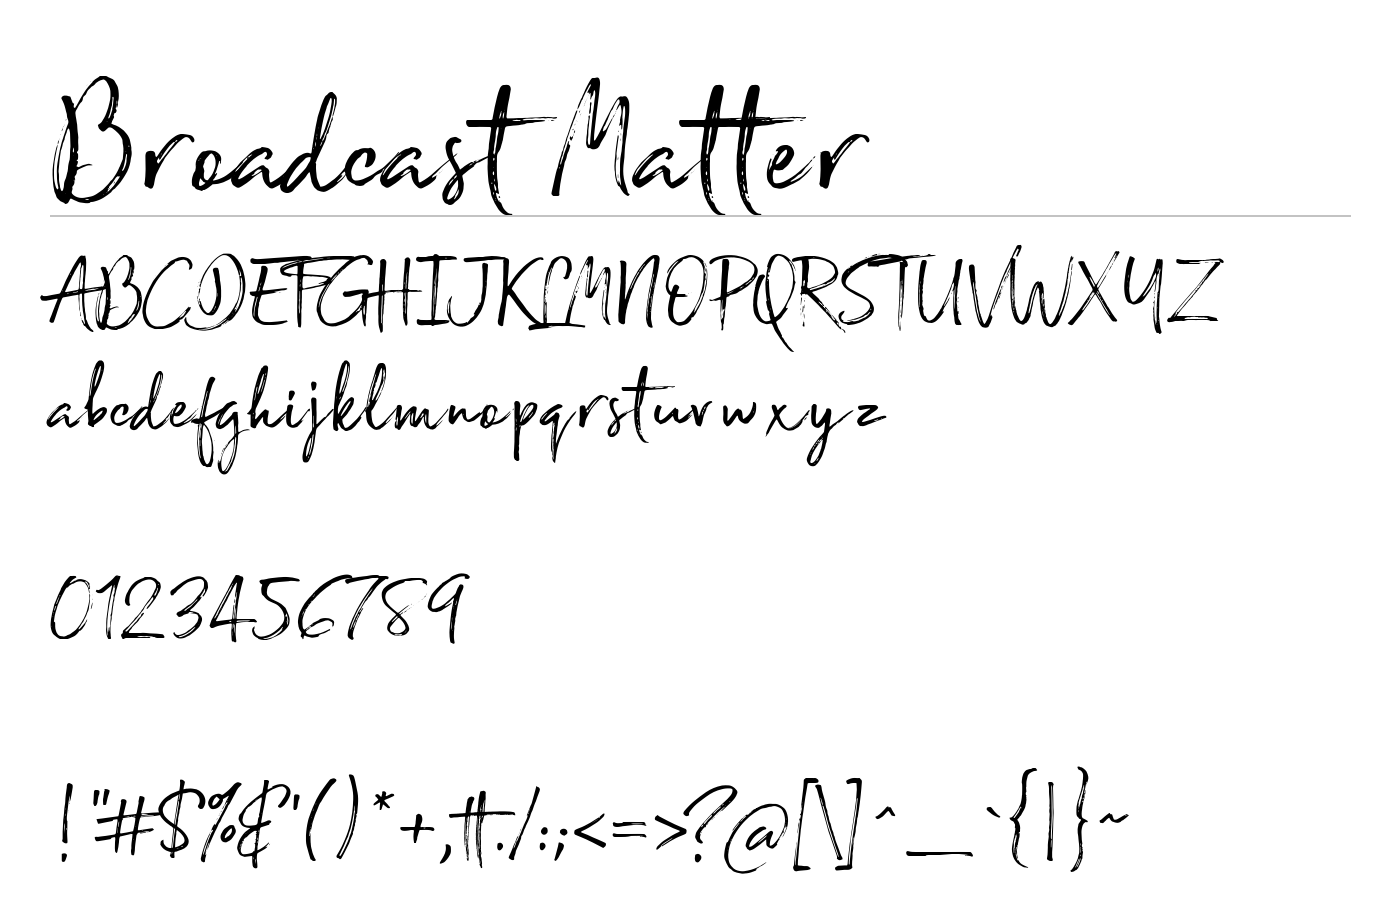 Broadcast Matter
ABCDEFGHIJKLMNOPQRSTUVWXYZ
abcdefghijklmnopqrstuvwxyz
0123456789
!"#$%&'()*+,tt./:;<=>?@[\]^_`{|}~